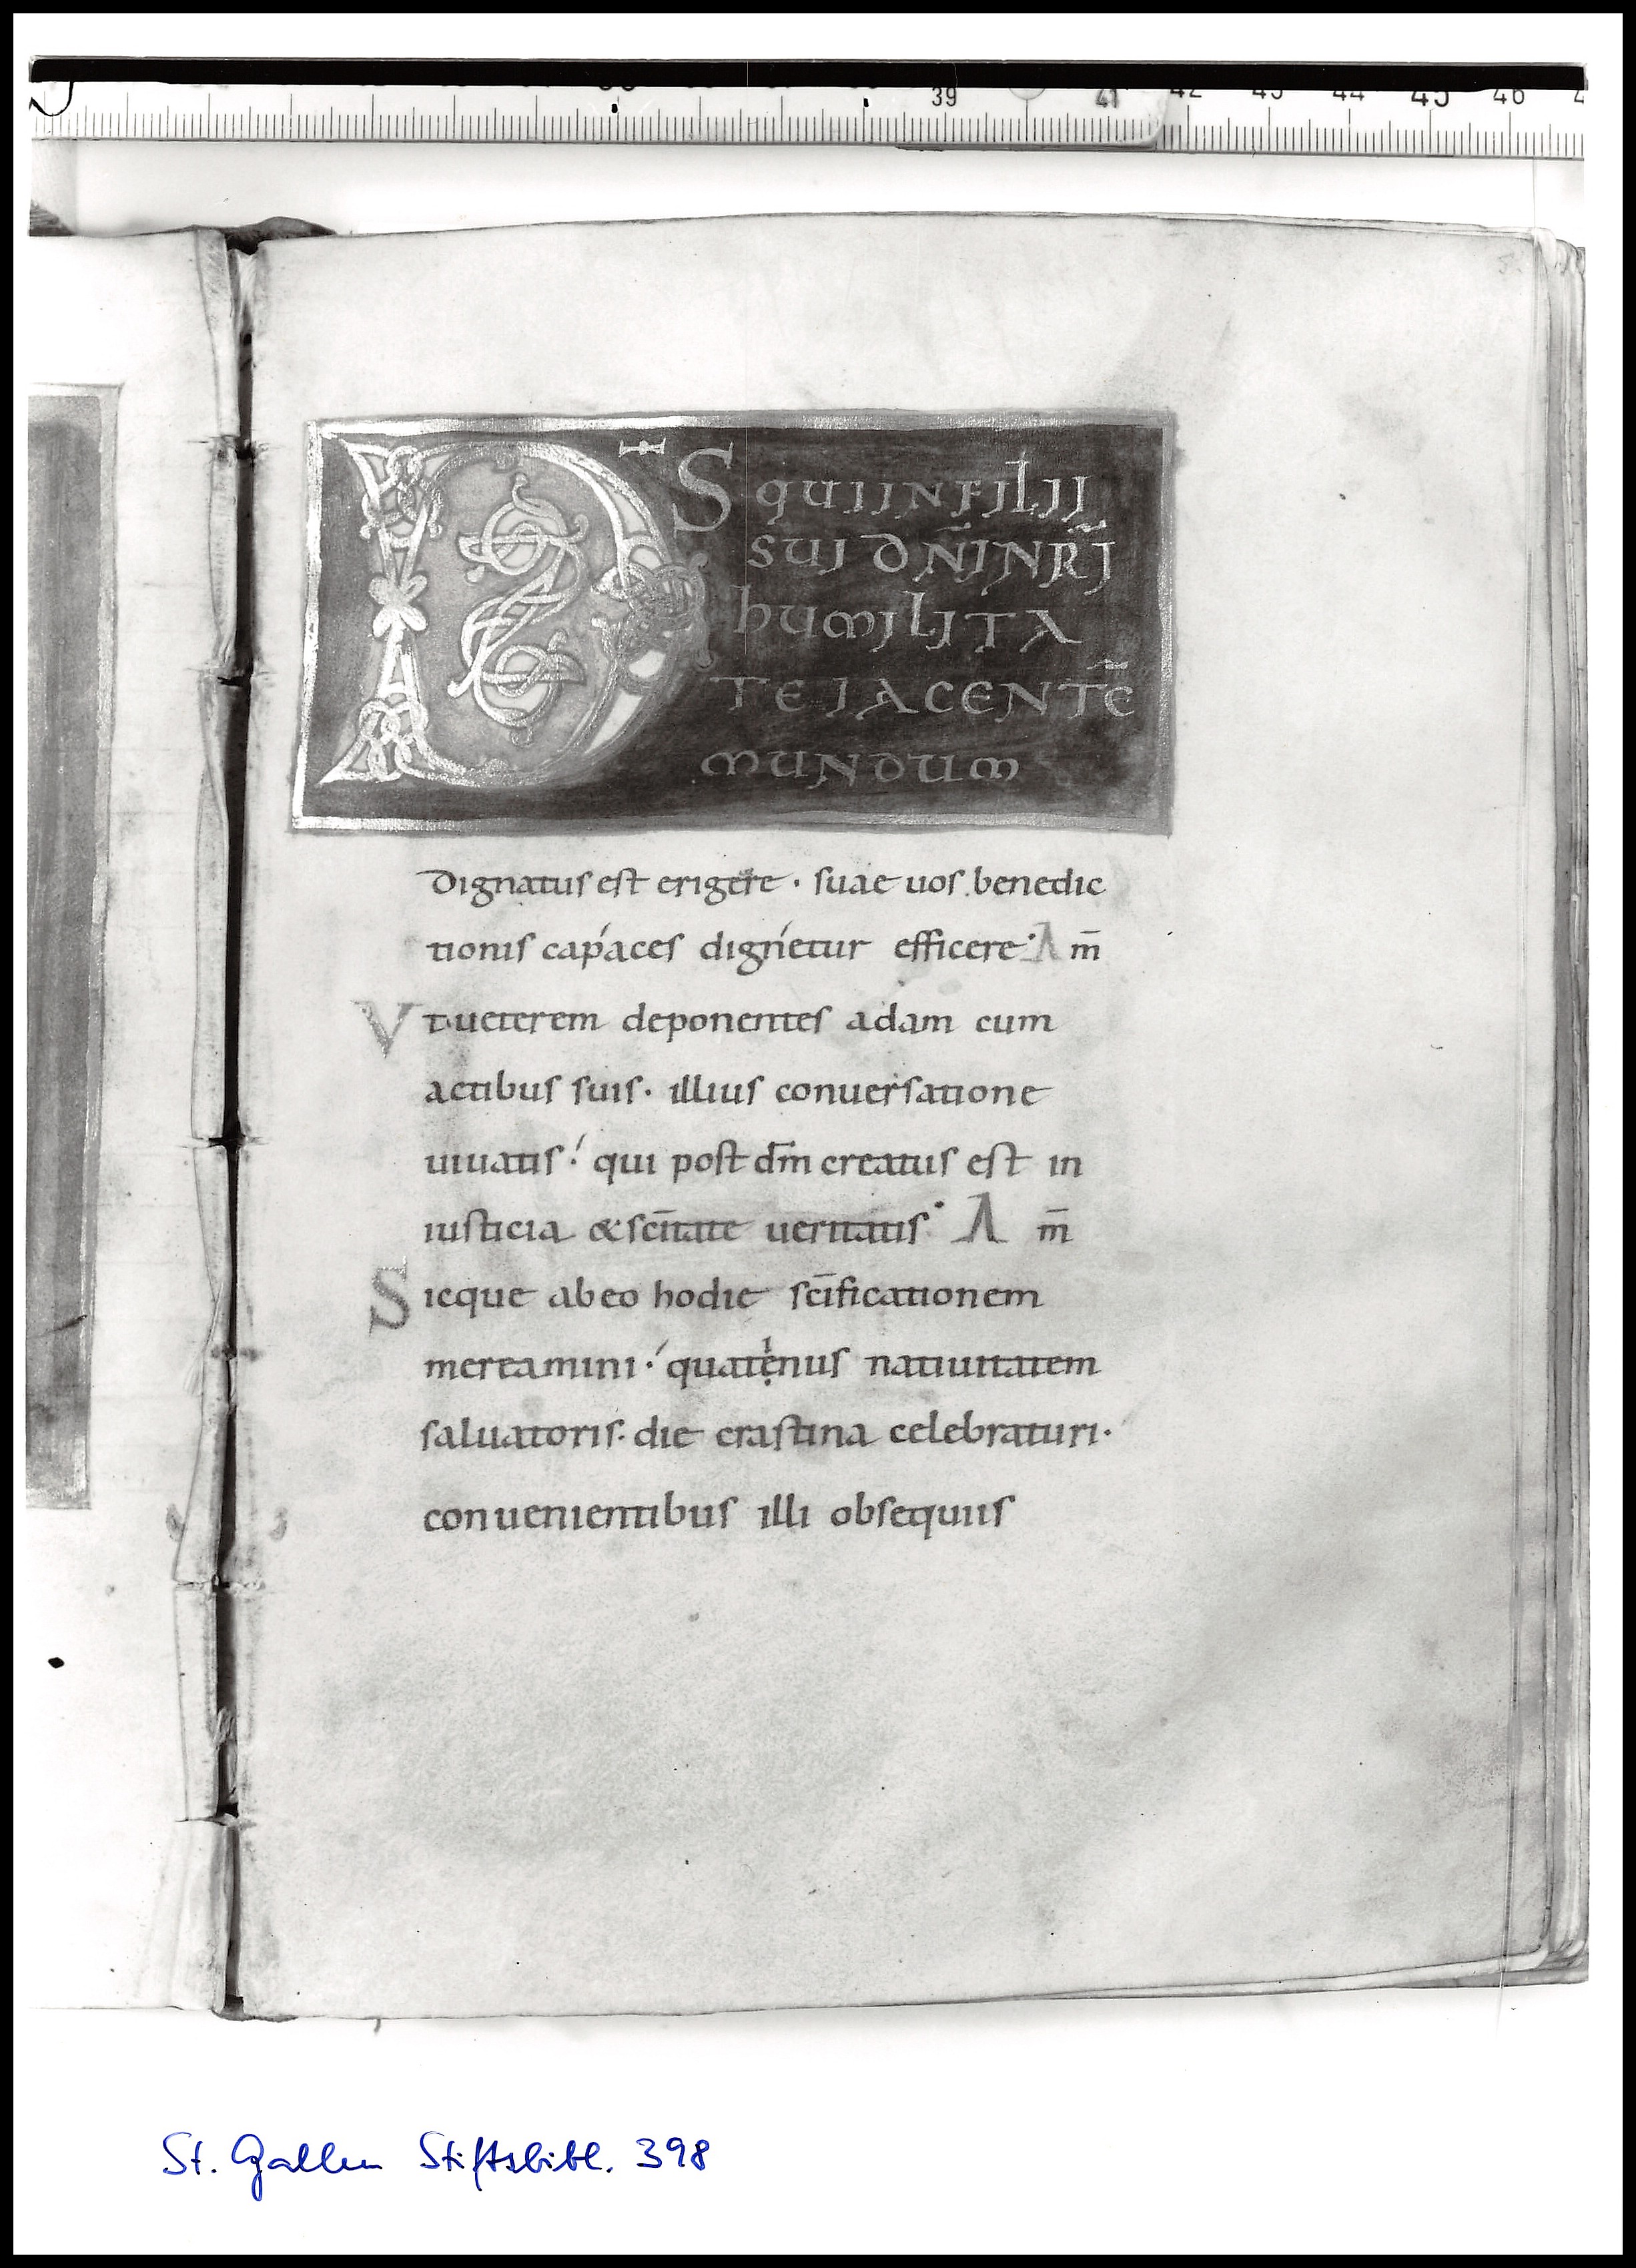 39 41 42 43 44 45 46
5.
D̄S QUI IN FILII
SUI DN̄I NR̄I
HUMILITA
TE IACENTĒ
MUNDUM
dignatus est erigere · suae uos benedic
tionis capaces dignetur efficere · A m̄
Vt ueterem deponentes adam cum
actibus suis · illius conuersatione
uiuatis · qui post dm̄ creatus est in
iusticia & scītate ueritatis · A m̄
Sicque ab eo hodie scīficationem
mereamini · quatenus natiuitatem
saluatoris · die crastina celebraturi ·
conuenientibus illi obsequiis
St. Gallen Stiftsbibl. 398